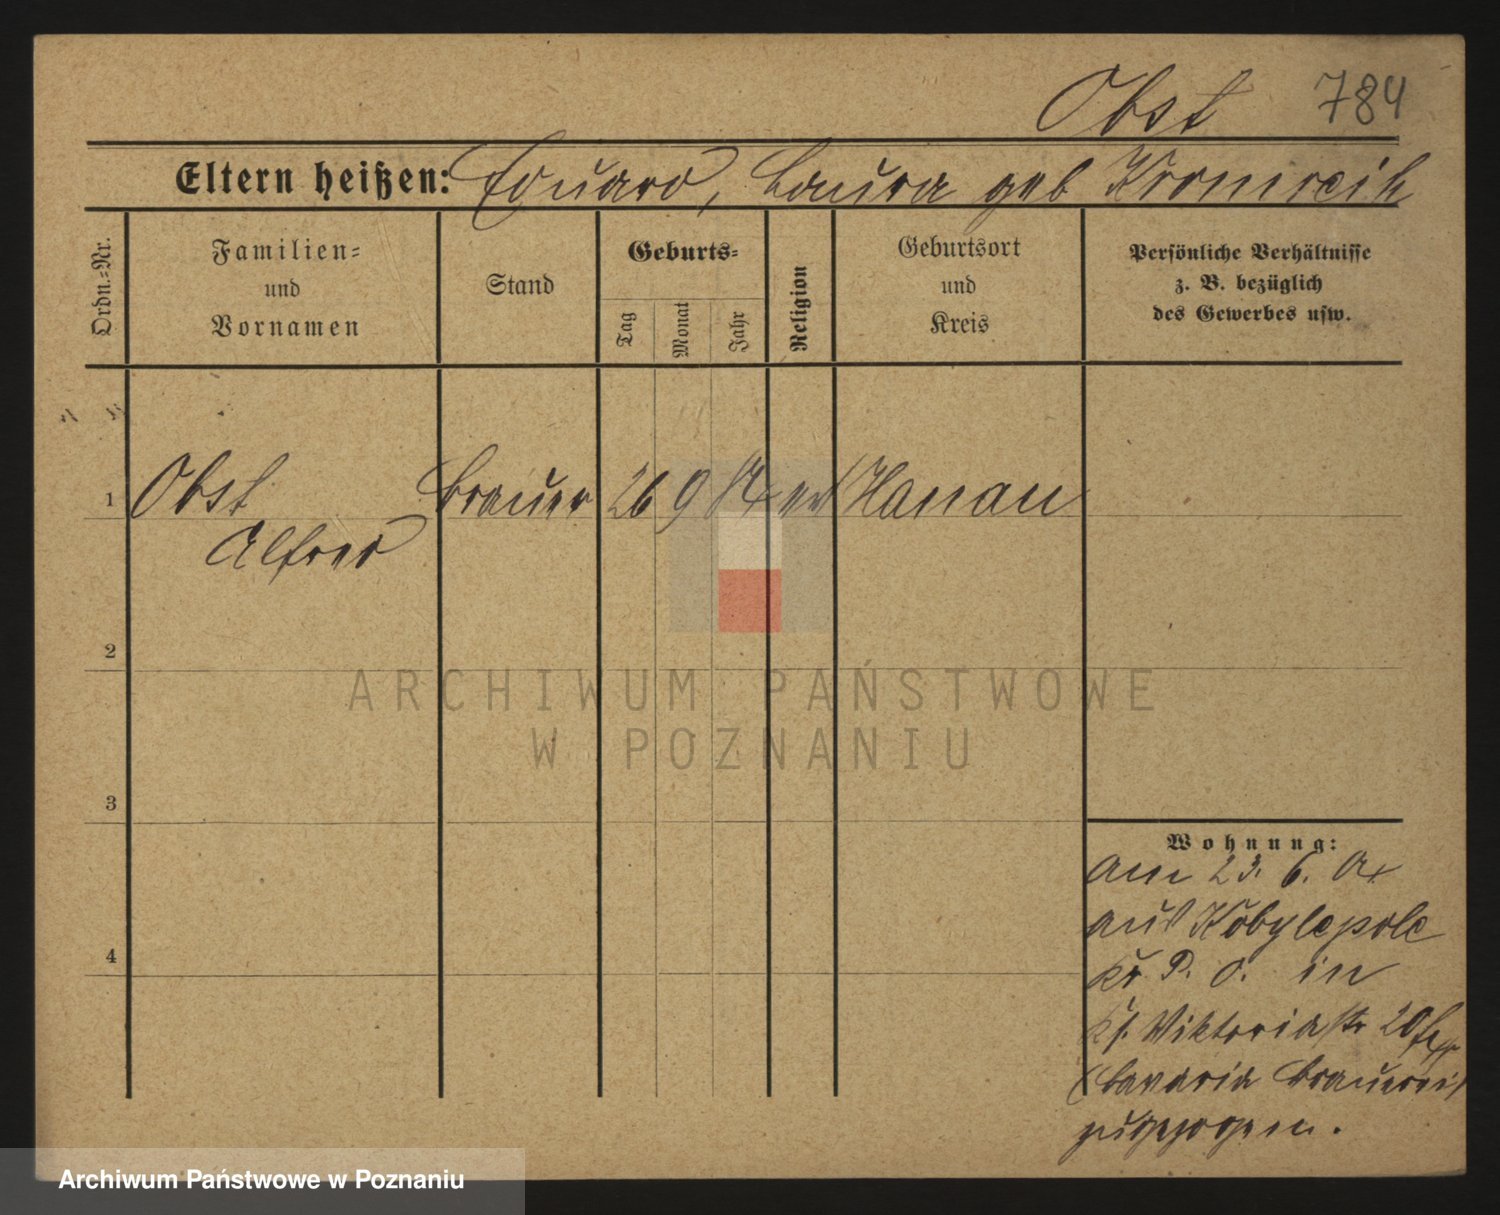 Obst 784
Eltern heißen: Eduard, Laura geb Kromreik
Ordn.=Nr.
Familien=
und
Vornamen
Stand
Geburts=
Tag
Monat
Jahr
Religion
Geburtsort
und
Kreis
Persönliche Verhältnisse
z. B. bezüglich
des Gewerbes usw.
1 Obst Brauer 26 9 ev Hanau
Alfred
2
3
4
Wohnung:
am 23. 6.
aus Kobylepole
Kr. P. O. in
Viktoriastr 20
(Bavaria Brauerei)
zugezogen.
ARCHIWUM PAŃSTWOWE
W POZNANIU
Archiwum Państwowe w Poznaniu